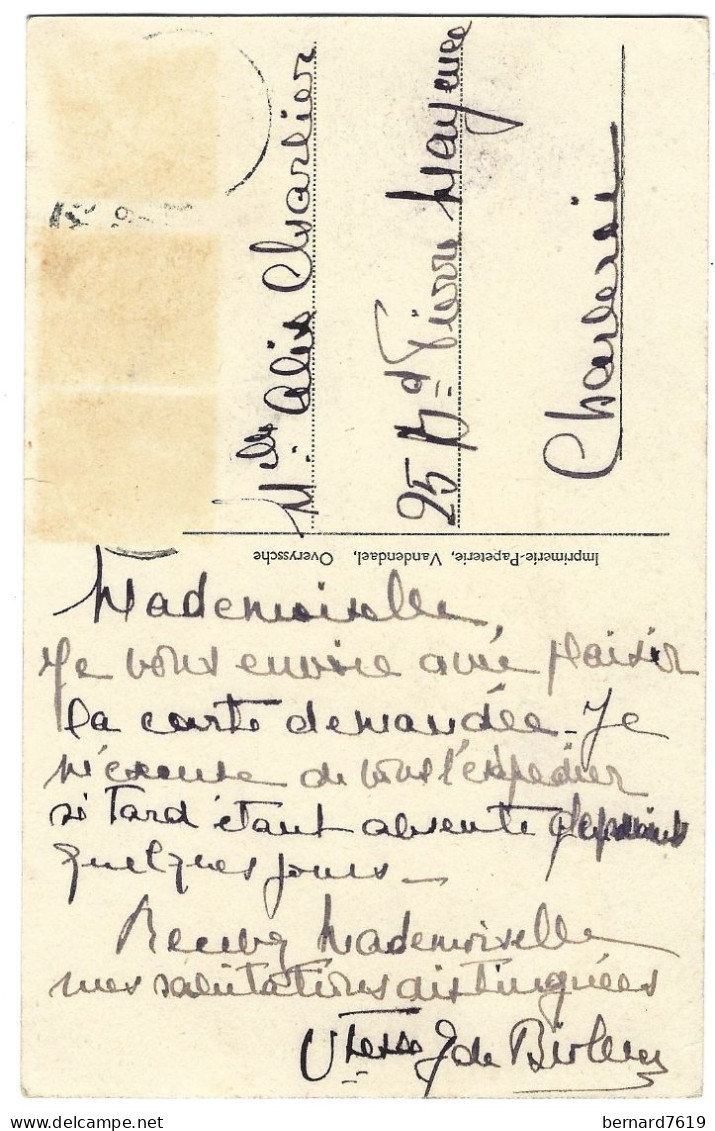 Mlle Alix Charlier
25 Bd Pierre Mayence
Charleroi
Imprimerie-Papeterie, Vandendael, Overyssche
Mademoiselle,
Je vous envoie avec plaisir
la carte demandée - Je
m'excuse de vous l'expédier
si tard étant absente depuis
quelques jours -
Recevez Mademoiselle
mes salutations distinguées
Vtesse J de
bernard7619